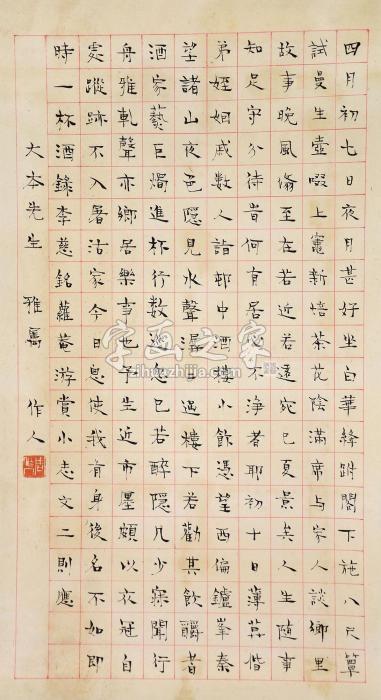 四月初七日夜月甚好坐白華絳跗閣下施八尺簟
試曼生壺啜上竈新焙茶花陰滿席与家人談鄉里
故事晚風翛至在若近若遠宛已夏景矣人生随事
知足守分待時何有居心不浄者耶初十日薄暮偕
弟姪姻戚數人詣邨中酒樓小飲憑望西偏鑪峯秦
望諸山夜色隱見水聲潺潺過樓下若勸其飲釂者
酒家蓺巨燭進杯行數巡忽已若醉隱几少寐聞行
舟雅軋聲亦鄉居樂事也予生近市墨頗以衣冠自
處蹤跡不入屠沽家今日忽使我有身後名不如即
時一杯酒錄李慈銘蘿菴游賞小志文二則應
大本先生 雅屬 作人
字画之家
zihuazhijia.com